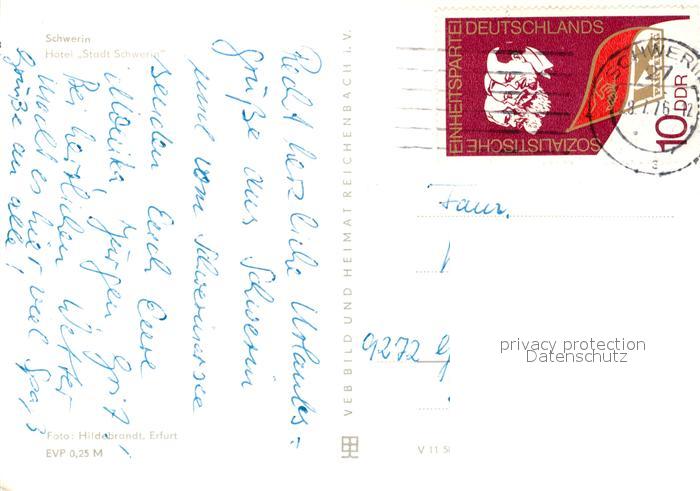 Schwerin
Hotel „Stadt Schwerin"
Recht herzliche Urlaubs=
grüße aus Schwerin
und vom Schweriner See
senden Euch Eure
Monika, Jürgen
Bei herrlichem Wetter
macht es hier viel Spaß
Grüße an alle!
Foto: Hildebrandt, Erfurt
EVP 0,25 M
VEB BILD UND HEIMAT REICHENBACH i. V.
V 11 5
SOZIALISTISCHE
EINHEITSPARTEI
DEUTSCHLANDS
10 DDR
SCHWERIN
Fam.
9272 G
privacy protection
Datenschutz